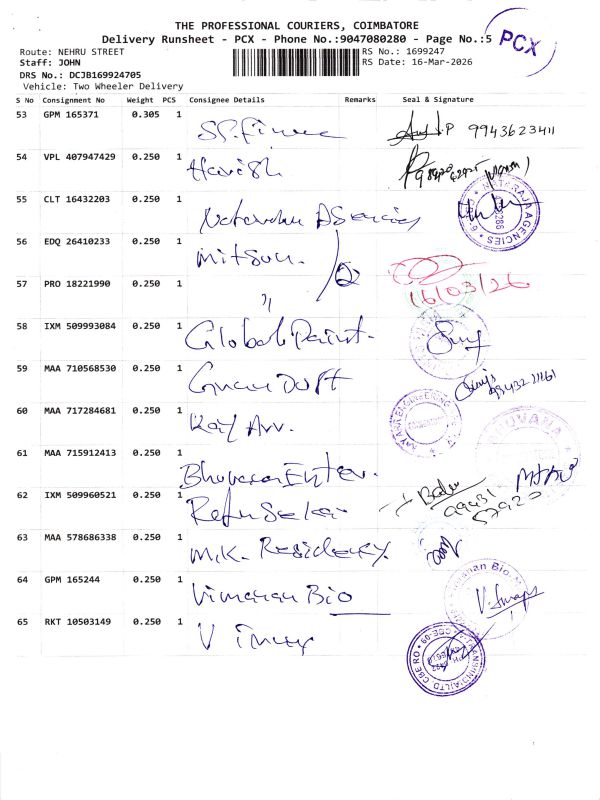 THE PROFESSIONAL COURIERS, COIMBATORE
Delivery Runsheet - PCX - Phone No.:9047080280 - Page No.:5
PCX
Route: NEHRU STREET
RS No.: 1699247
Staff: JOHN
RS Date: 16-Mar-2026
DRS No.: DCJB169924705
Vehicle: Two Wheeler Delivery
S No Consignment No Weight PCS Consignee Details Remarks Seal & Signature
53 GPM 165371 0.305 1 9943623411
54 VPL 407947429 0.250 1 Harish
55 CLT 16432203 0.250 1 Agencies
NATARAJA AGENCIES
56 EDQ 26410233 0.250 1 Mitsun.
57 PRO 18221990 0.250 1 〃 16/03/26
58 IXM 509993084 0.250 1 Global Paint.
59 MAA 710568530 0.250 1
60 MAA 717284681 0.250 1
ENGINEERING
61 MAA 715912413 0.250 1 Bhuvana Enter.
BHUVANA
62 IXM 509960521 0.250 1 Babu 99431 57920
63 MAA 578686338 0.250 1 M.K. Residency.
64 GPM 165244 0.250 1 Vimanan Bio
65 RKT 10503149 0.250 1